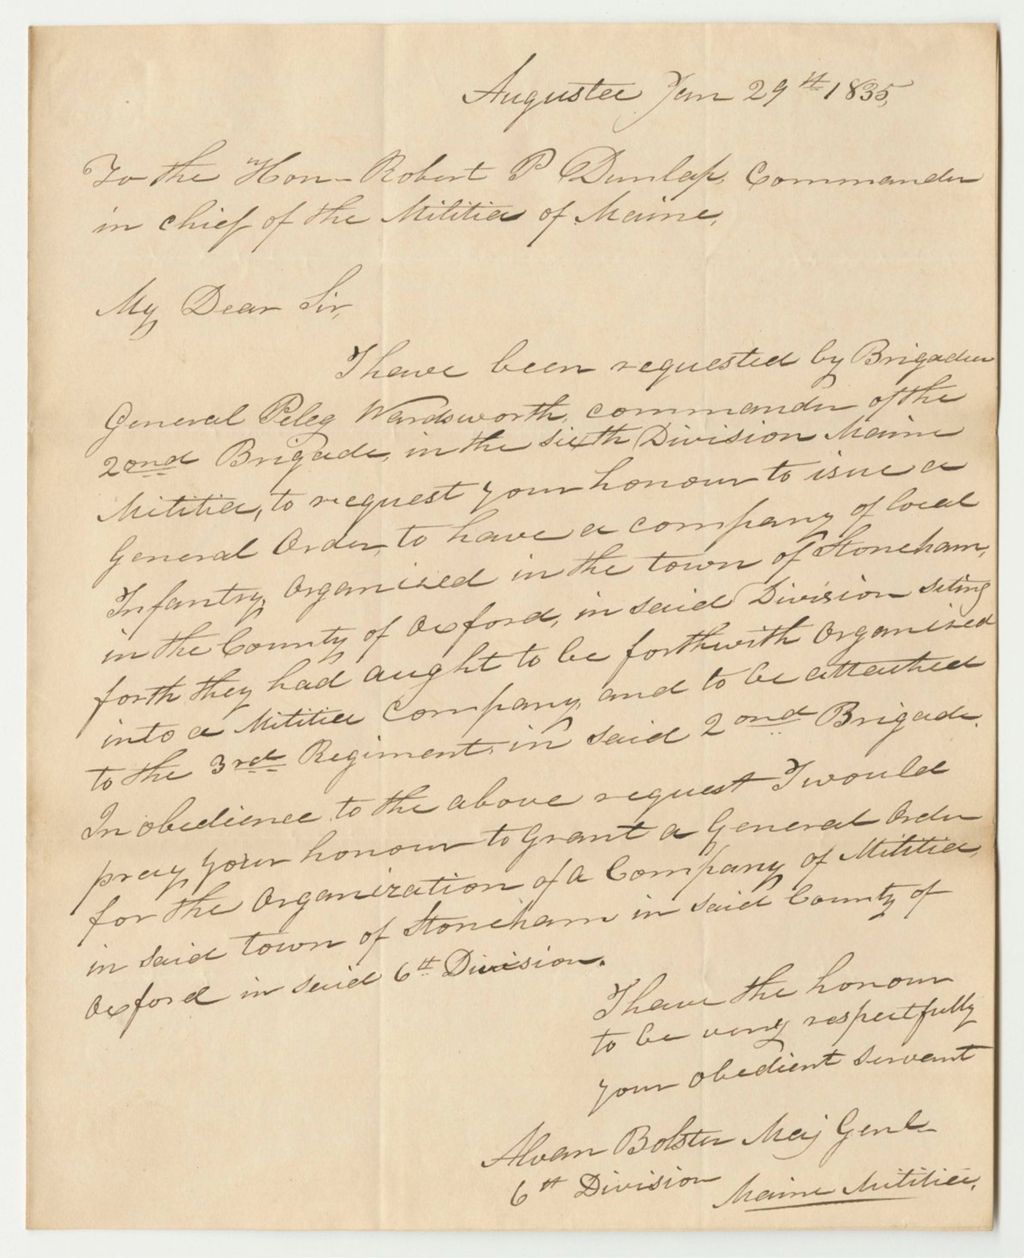 Augusta Jan 29th 1835,
To the Hon- Robert P Dunlap, Commander
in chief of the Militia of Maine,
My Dear Sir,
I have been requested by Brigadier
General Peleg Wardsworth, commander of the
2ond Brigade, in the sixth Division Maine
Militia, to request your honour to isue a
General Order to have a company of local
Infantry, Organised in the town of Stoneham,
in the County of Oxford, in said Division siting
forth they had aught to be forthwith Organised
into a Militia Company, and to be attached
to the 3rd Regiment, in said 2ond Brigade.
In obedience to the above request I would
pray your honour to Grant a General Order
for the Organization of a Company of Militia,
in said town of Stoneham in said County of
Oxford in said 6th Division.
I have the honour
to be very respectfully
your obedient servant
Alvan Bolster Maj Genl-
6th Division Maine Militia,